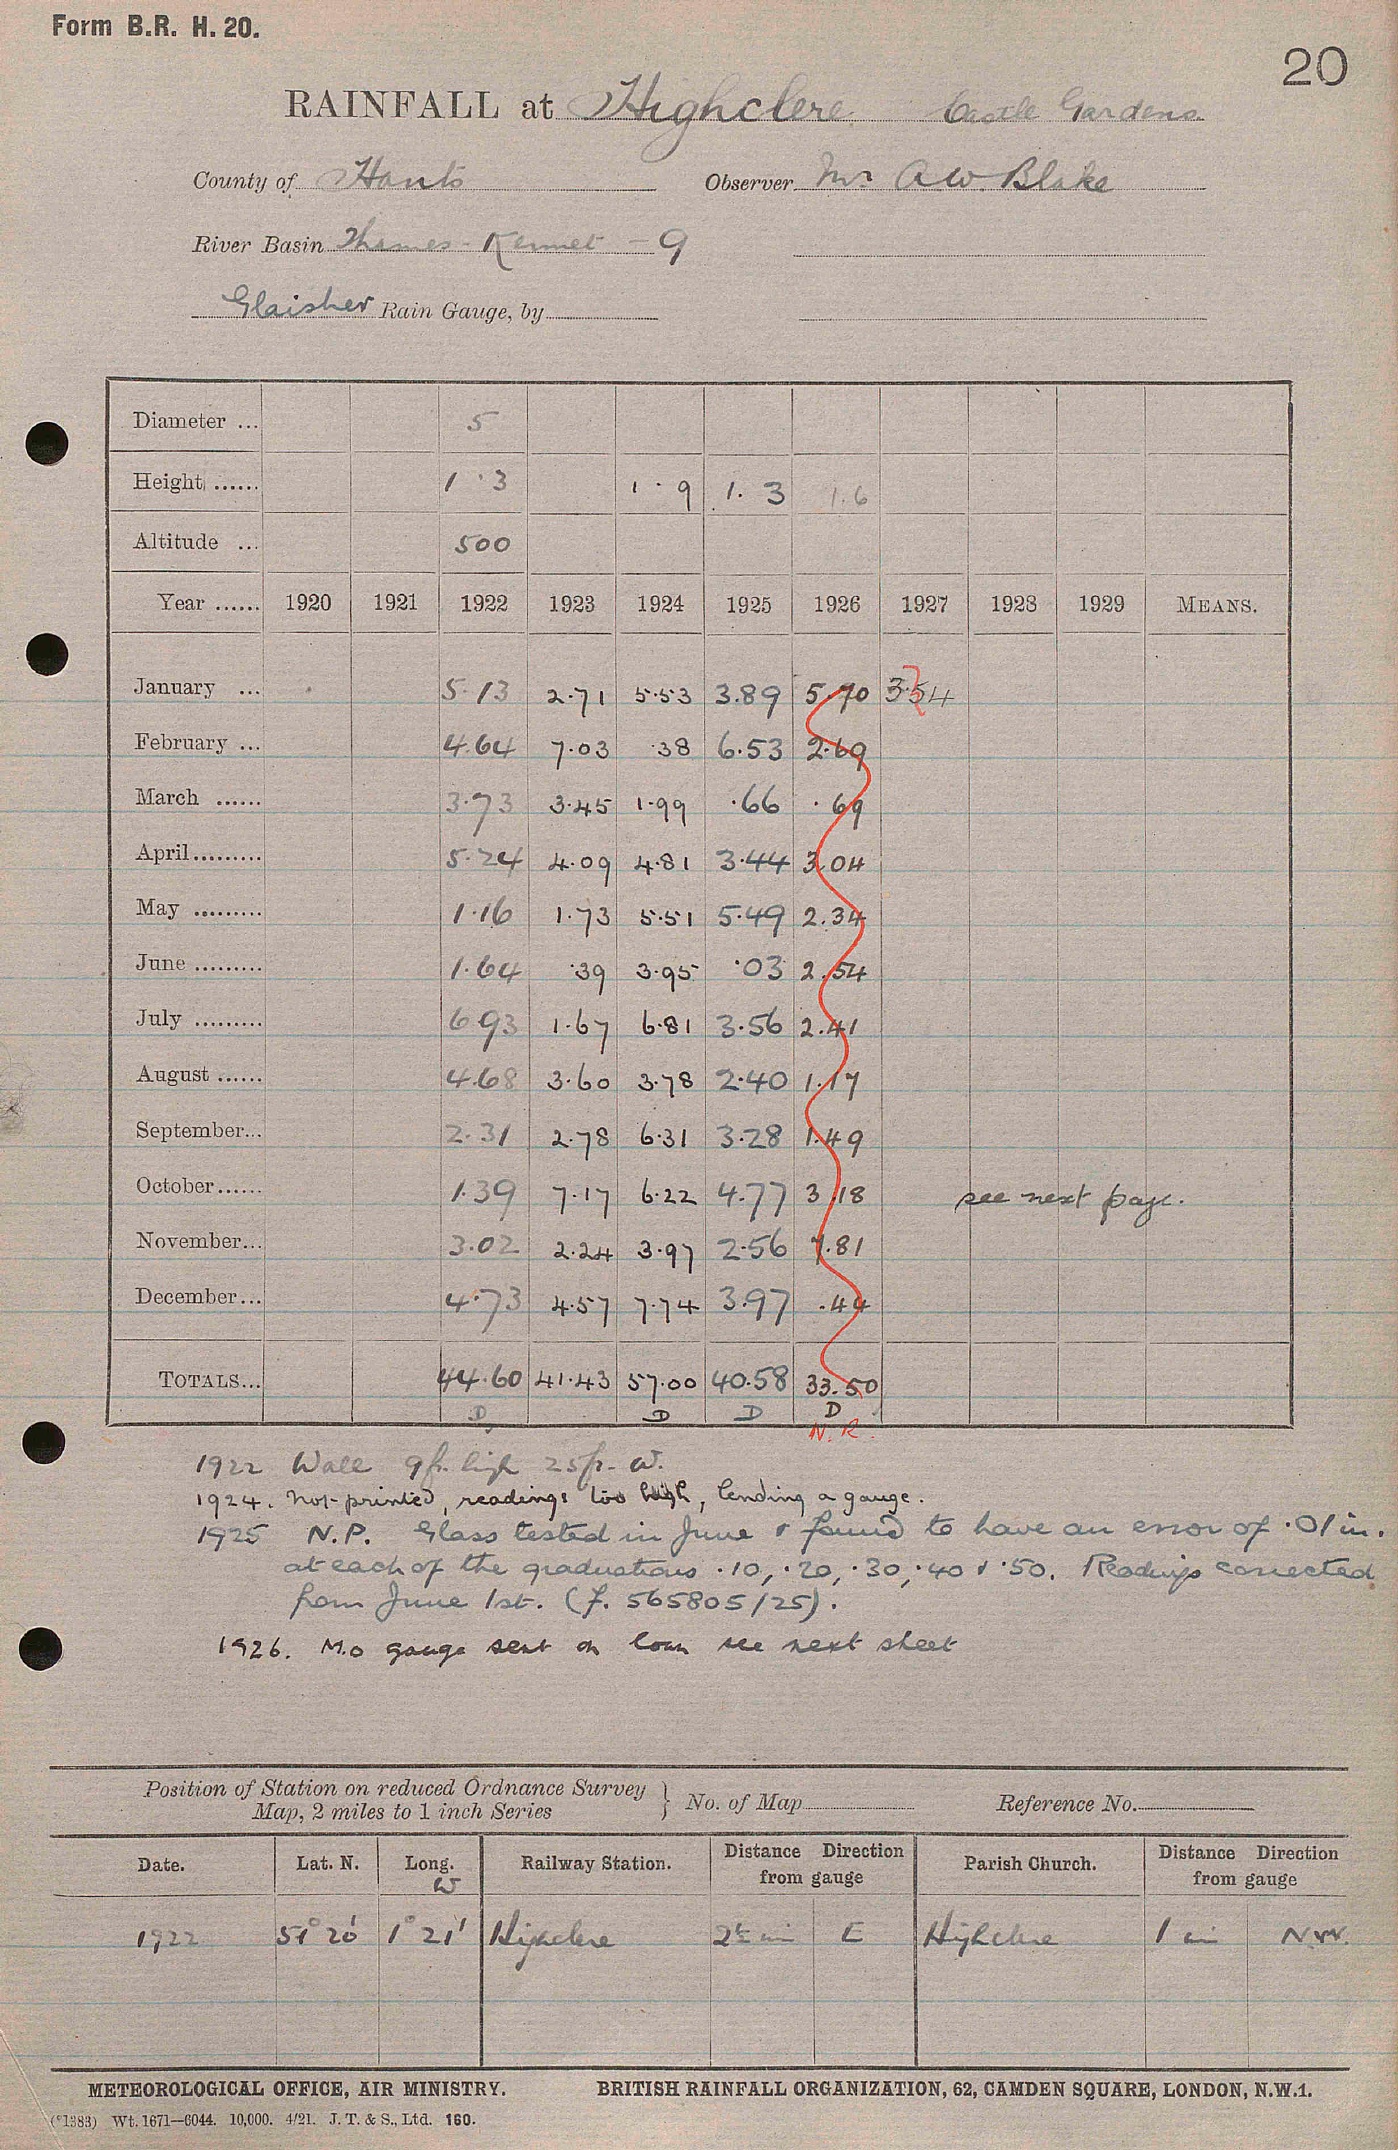 Form B.R. H. 20.
20
RAINFALL at Highclere Castle Gardens
County of Hants Observer Mr. A W. Blake
River Basin Thames - Kennet - 9
Glaisher Rain Gauge, by
Diameter ... 5
Height ...... 1 · 3 1 · 9 1 · 3 1.6
Altitude ... 500
Year ...... 1920 1921 1922 1923 1924 1925 1926 1927 1928 1929 MEANS.
January ... 5.13 2.71 5.53 3.89 5.70 3.54
February ... 4.64 7.03 .38 6.53 2.69
March ...... 3.73 3.45 1.99 .66 .69
April ......... 5.24 4.09 4.81 3.44 3.04
May ......... 1.16 1.73 5.51 5.49 2.34
June ......... 1.64 .39 3.95 .03 2.54
July ......... 6.93 1.67 6.81 3.56 2.41
August ...... 4.68 3.60 3.78 2.40 1.17
September... 2.31 2.78 6.31 3.28 1.49
October...... 1.39 7.17 6.22 4.77 3.18 see next page.
November... 3.02 2.24 3.97 2.56 7.81
December... 4.73 4.57 7.74 3.97 .44
TOTALS... 44.60 41.43 57.00 40.58 33.50
D D D D
N.R.
1922 Wall 9 ft. high 25 ft. W.
1924. Not printed, readings too high, lending a gauge.
1925 N.P. Glass tested in June & found to have an error of .01 in.
at each of the graduations .10, .20, .30, .40 & .50. Readings corrected
from June 1st. (f. 565805/25).
1926. M.O gauge sent on loan see next sheet
Position of Station on reduced Ordnance Survey
Map, 2 miles to 1 inch Series } No. of Map Reference No.
Date. Lat. N. Long. W Railway Station. Distance Direction from gauge Parish Church. Distance Direction from gauge
1922 51° 20' 1° 21' Highclere 2½ mi E Highclere 1 mi N.W.
METEOROLOGICAL OFFICE, AIR MINISTRY. BRITISH RAINFALL ORGANIZATION, 62, CAMDEN SQUARE, LONDON, N.W.1.
(*1383) Wt. 1671—6044. 10,000. 4/21. J. T. & S., Ltd. 160.